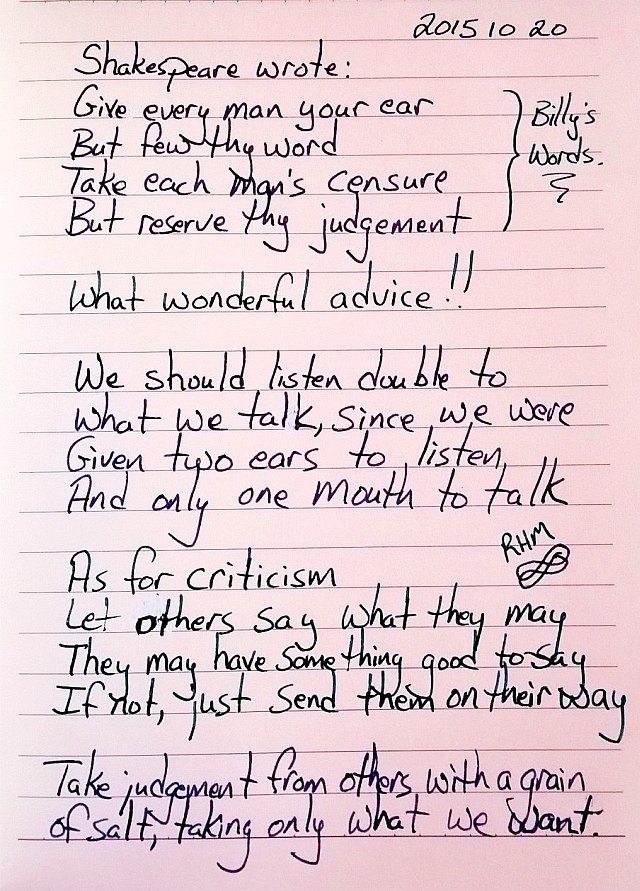 2015 10 20
Shakespeare wrote:
Give every man your ear
But few thy word
Take each man's censure
But reserve thy judgement
Billy's
Words.
What wonderful advice!!
We should listen double to
What we talk, since we were
Given two ears to listen,
And only one mouth to talk
RHM
As for criticism
Let others say what they may
They may have something good to say
If not, just send them on their way
Take judgement from others with a grain
of salt, taking only what we want.